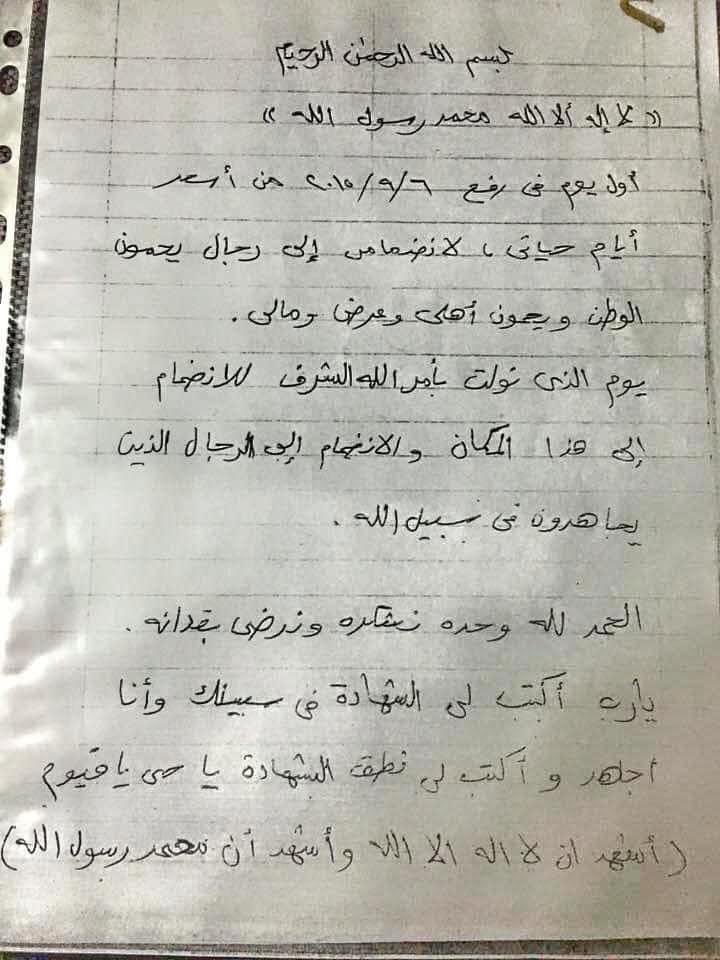 بسم الله الرحمن الرحيم
« لا إله ألا الله محمد رسول الله »
أول يوم فى رفح ٢٠١٥/٩/٦ من أسعد
أيام حياتى ، لانضمامى إلى رجال يحمون
الوطن ويحمون أهلى وعرضى ومالى .
يوم الذى نولت بأمر الله الشرف للانضمام
إلى هذا المكان والانضمام إلى الرجال الذين
يجاهدون فى سبيل الله .
الحمد لله وحده نشكره ونرضى بقدره .
يارب أكتب لى الشهادة فى سبيلك وأنا
أجاهد و أكتب لى نطق الشهادة يا حى يا قيوم
( أشهد ان لا اله الا الله وأشهد أن محمد رسول الله )